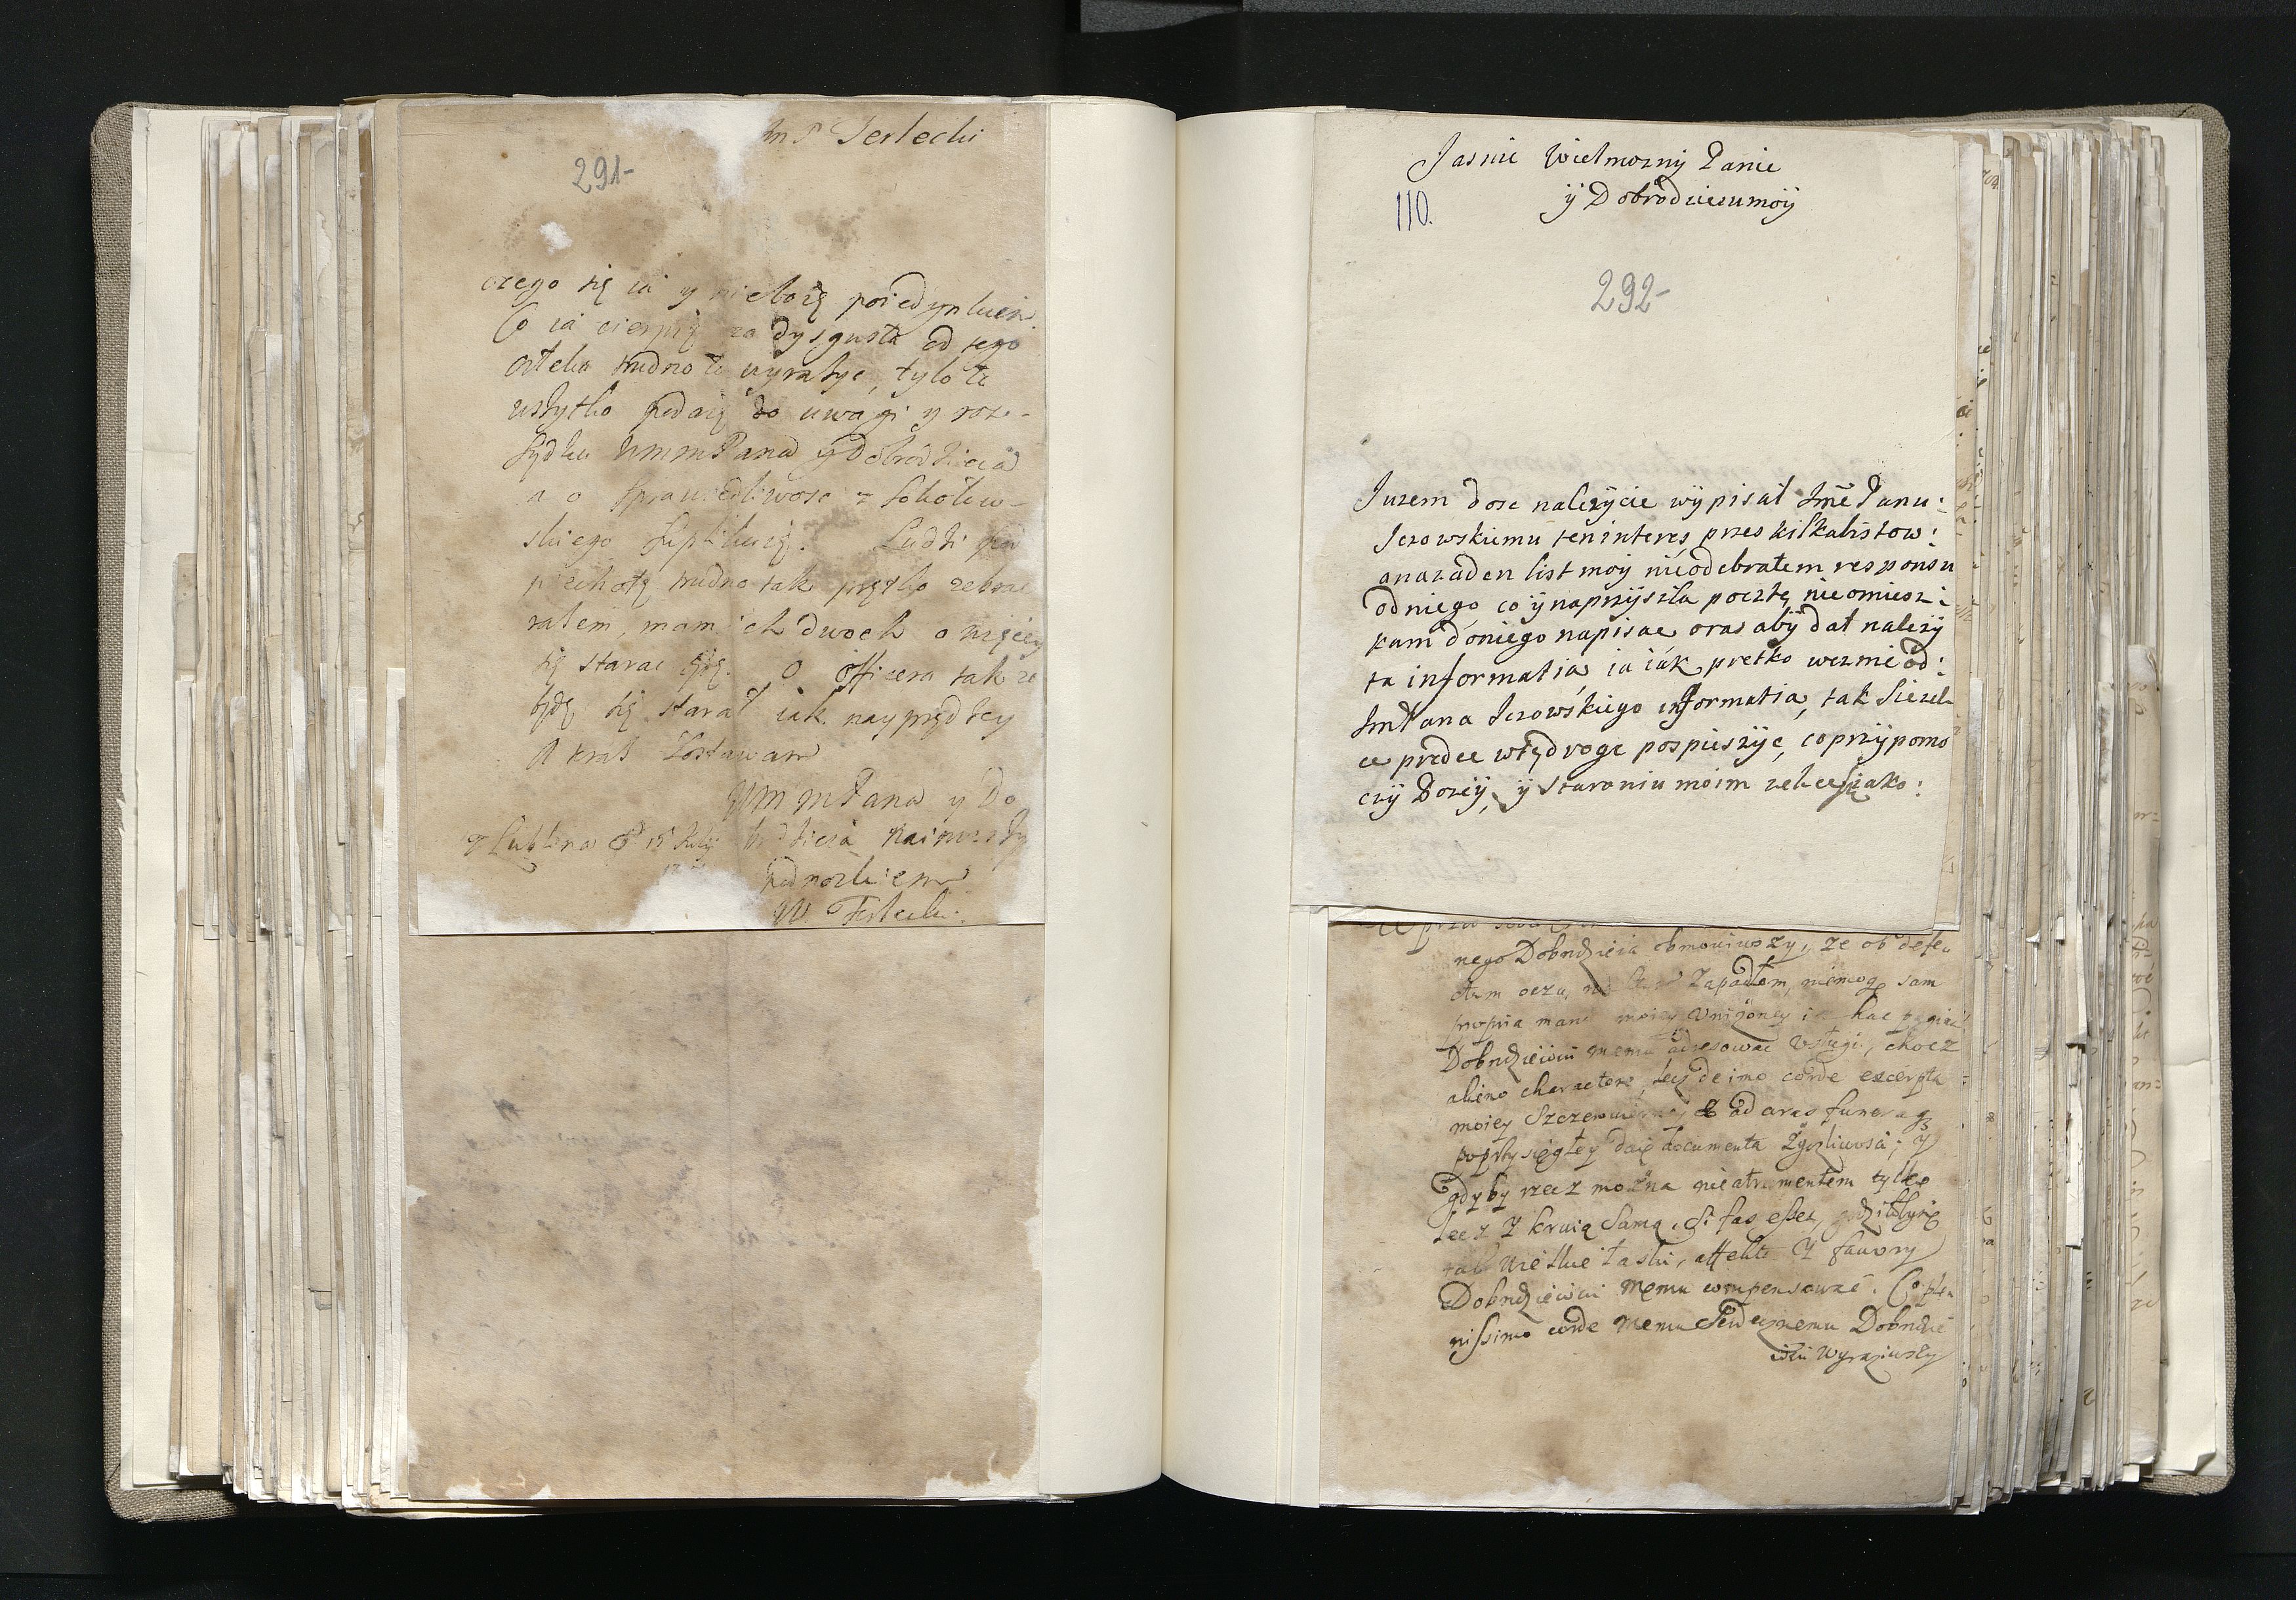 Im P Terlecki
291-
czego się ia y nieboię poiedynkiem
Co ia cierpię za dysgusta od tego
człeka trudno to wyrazyc, tylo to
wszytko podaię do uwagi y roz-
sądku WmmPana y Dobrodzieia
a o sprawiedliwosc z Sokolew-
skiego supplikuię. Ludzi
piechotę trudno tak prętko zebrac
ratem, mam ich dwoch o więcey
się starac O officera takze
będę się starał iak nayprędzey
A teraz Zostawam
WmmPana y Do
z Lublina d 15 July brodzieia Nainizszy
Podnozkiem
W. Terlecki.
Jasnie Wielmozny Panie
ÿ Dobrodzieiumoÿ
110.
292-
Juzem dosc nalezÿcie wÿpisał Jme Panu:
Jezowskiemu teninteres przes kilkalistow:
anazaden list moÿ nieodebratem responsu
odniego, co ÿ naprzÿszła pocztę nieomiesz:
kam doniego napisac oras abÿ dał nalezÿ
ta informatia, ia iak pretko wezmie od:
JmPana Jezowskiego informatia, tak
ce predce wtędroge pospieszÿc, coprzÿpomo
czÿ Bozeÿ, ÿ Staraniu moim zechcesiako:
nego Dobrodzieia obmowiwszy, ze ob defe
ctum oczu, Zapadłem, niemogę sam
propria manu moiey Unizoney hac pagina
Dobrodzieiowi memu adresowac Usługi, chocz
alieno charactere, lecz de imo corde excerpta
moiey Szczerowierney & ad aras funera qz
poprzysięgłey daię documenta Zyczliwosci; Y
gdyby rzecz można nieatramentem tylko
lecz Y krwią Samą, si fas esset, godziłbysię
tak Wielkie łaski, affekta Y fawory
Dobrodzieiowi Memu compensowac. Co ple
nissimo corde Memu Serdecznemu Dobrodzie
iowi Wyraziwszy